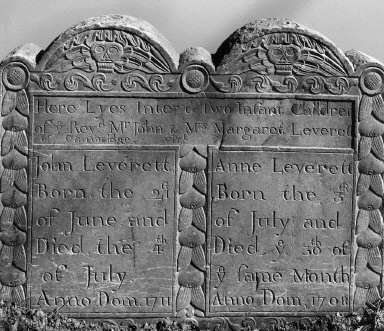 Here Lyes Inter'd Two Infant Children
of yͤ Revᵈ Mʳ John & Mʳˢ Margaret Leverett
Cambridge
John Leverett
Born the
of June and
Died the 4ᵗʰ
of July
Anno Dom. 1711
Anne Leverett
Born the 5ᵗʰ
of July and
Died yͤ 30ᵗʰ of
yͤ same Month
Anno Dom. 1708